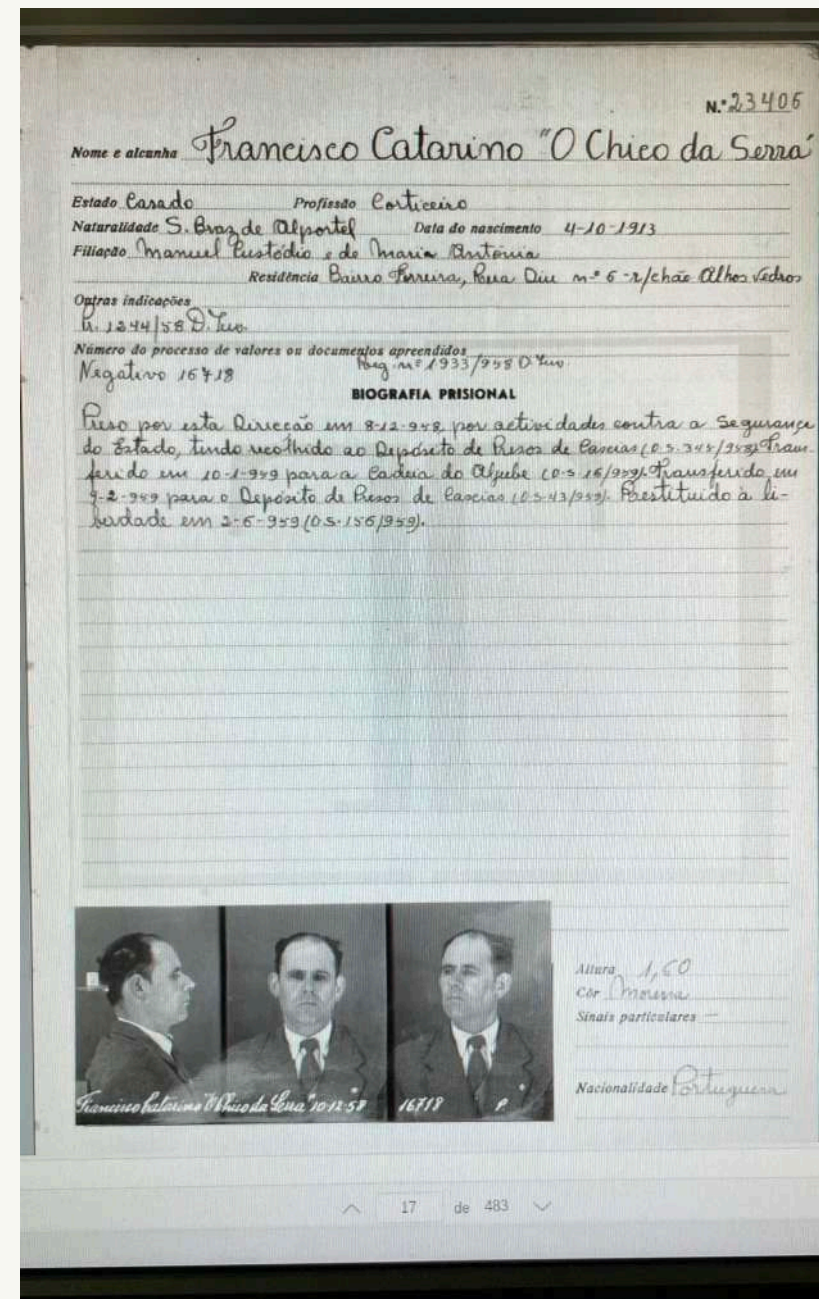 N.º 23406
Nome e alcunha Francisco Catarino "O Chico da Serra"
Estado Casado Profissão Corticeiro
Naturalidade S. Braz de Alportel Data do nascimento 4-10-1913
Filiação Manuel Custódio e de Maria Antónia
Residência Bairro Ferreira, Rua Diu nº 6-r/chão Alhos Vedros
Outras indicações
1244/58 D.
Número do processo de valores ou documentos apreendidos
Reg. nº 1933/958 D.
Negativo 16718
BIOGRAFIA PRISIONAL
Preso por esta Direcção em 8-12-958, por actividades contra a Segurança
do Estado, tendo recolhido ao Depósito de Presos de Caxias (O.S. 345/958). Trans-
ferido em 10-1-959 para a Cadeia do Aljube (O.S 16/959). Transferido em
9-2-959 para o Depósito de Presos de Caxias (O.S-43/959). Restituido à li-
berdade em 2-6-959 (O.S.156/959).
Altura 1,60
Côr Morena
Sinais particulares —
Nacionalidade Portuguesa
Francisco Catarino "O Chico da Serra" 10-12-58 16718 P.
17 de 483